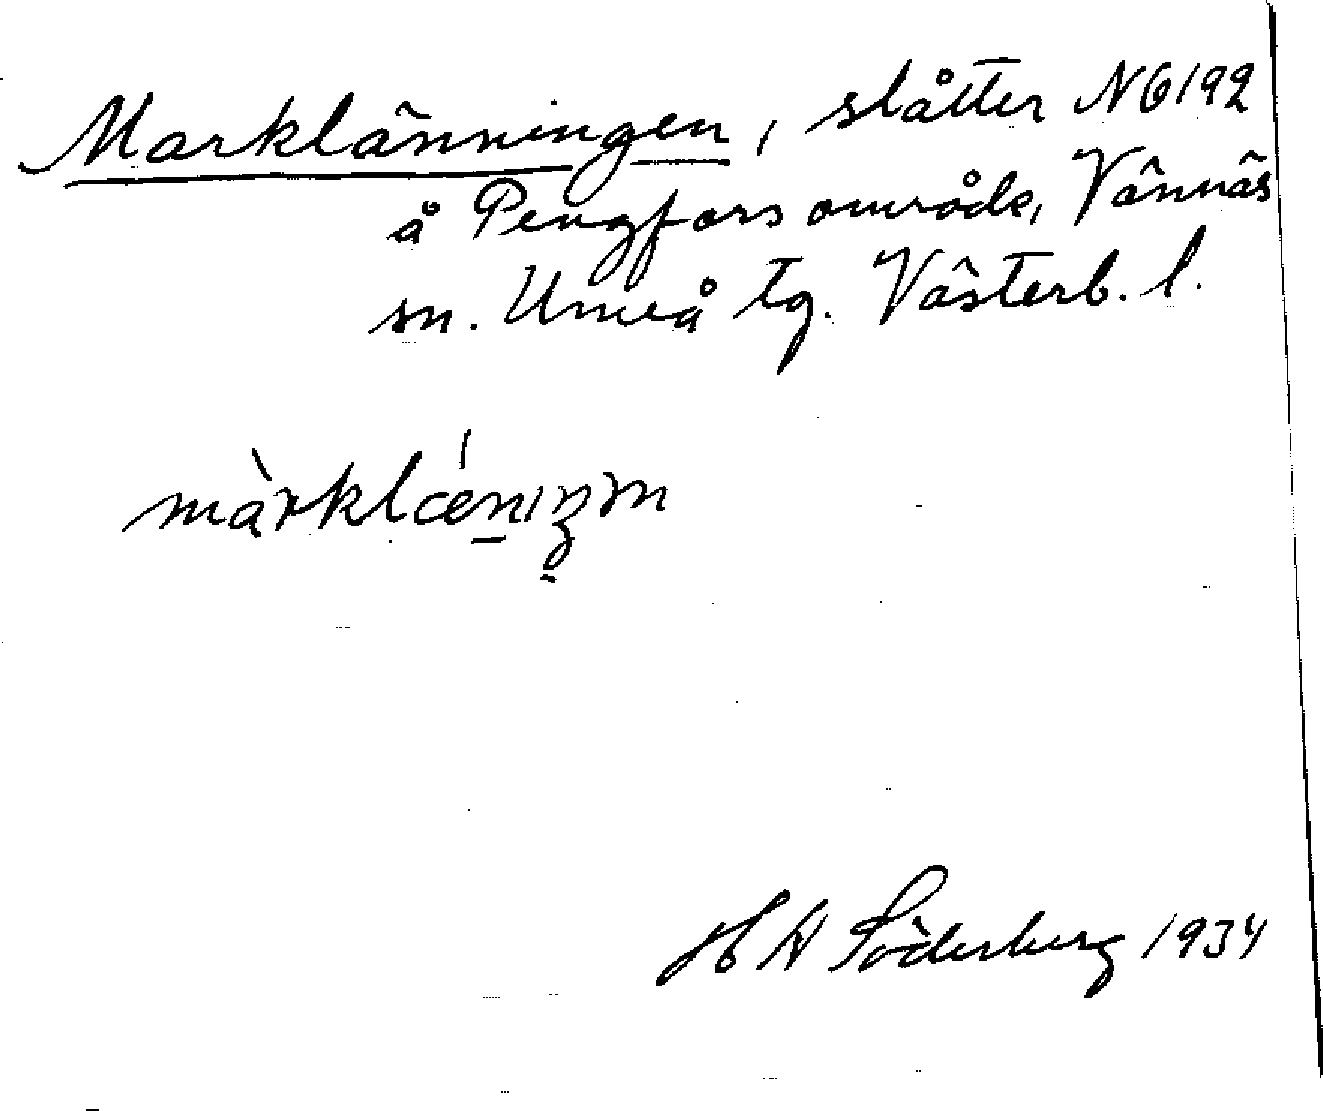 Marklänningen, slåtter N6192
å Pengfors område, Vännäs
sn. Umeå tg. Västerb. l.
màrklǽnıŋm
H A Söderberg 1934